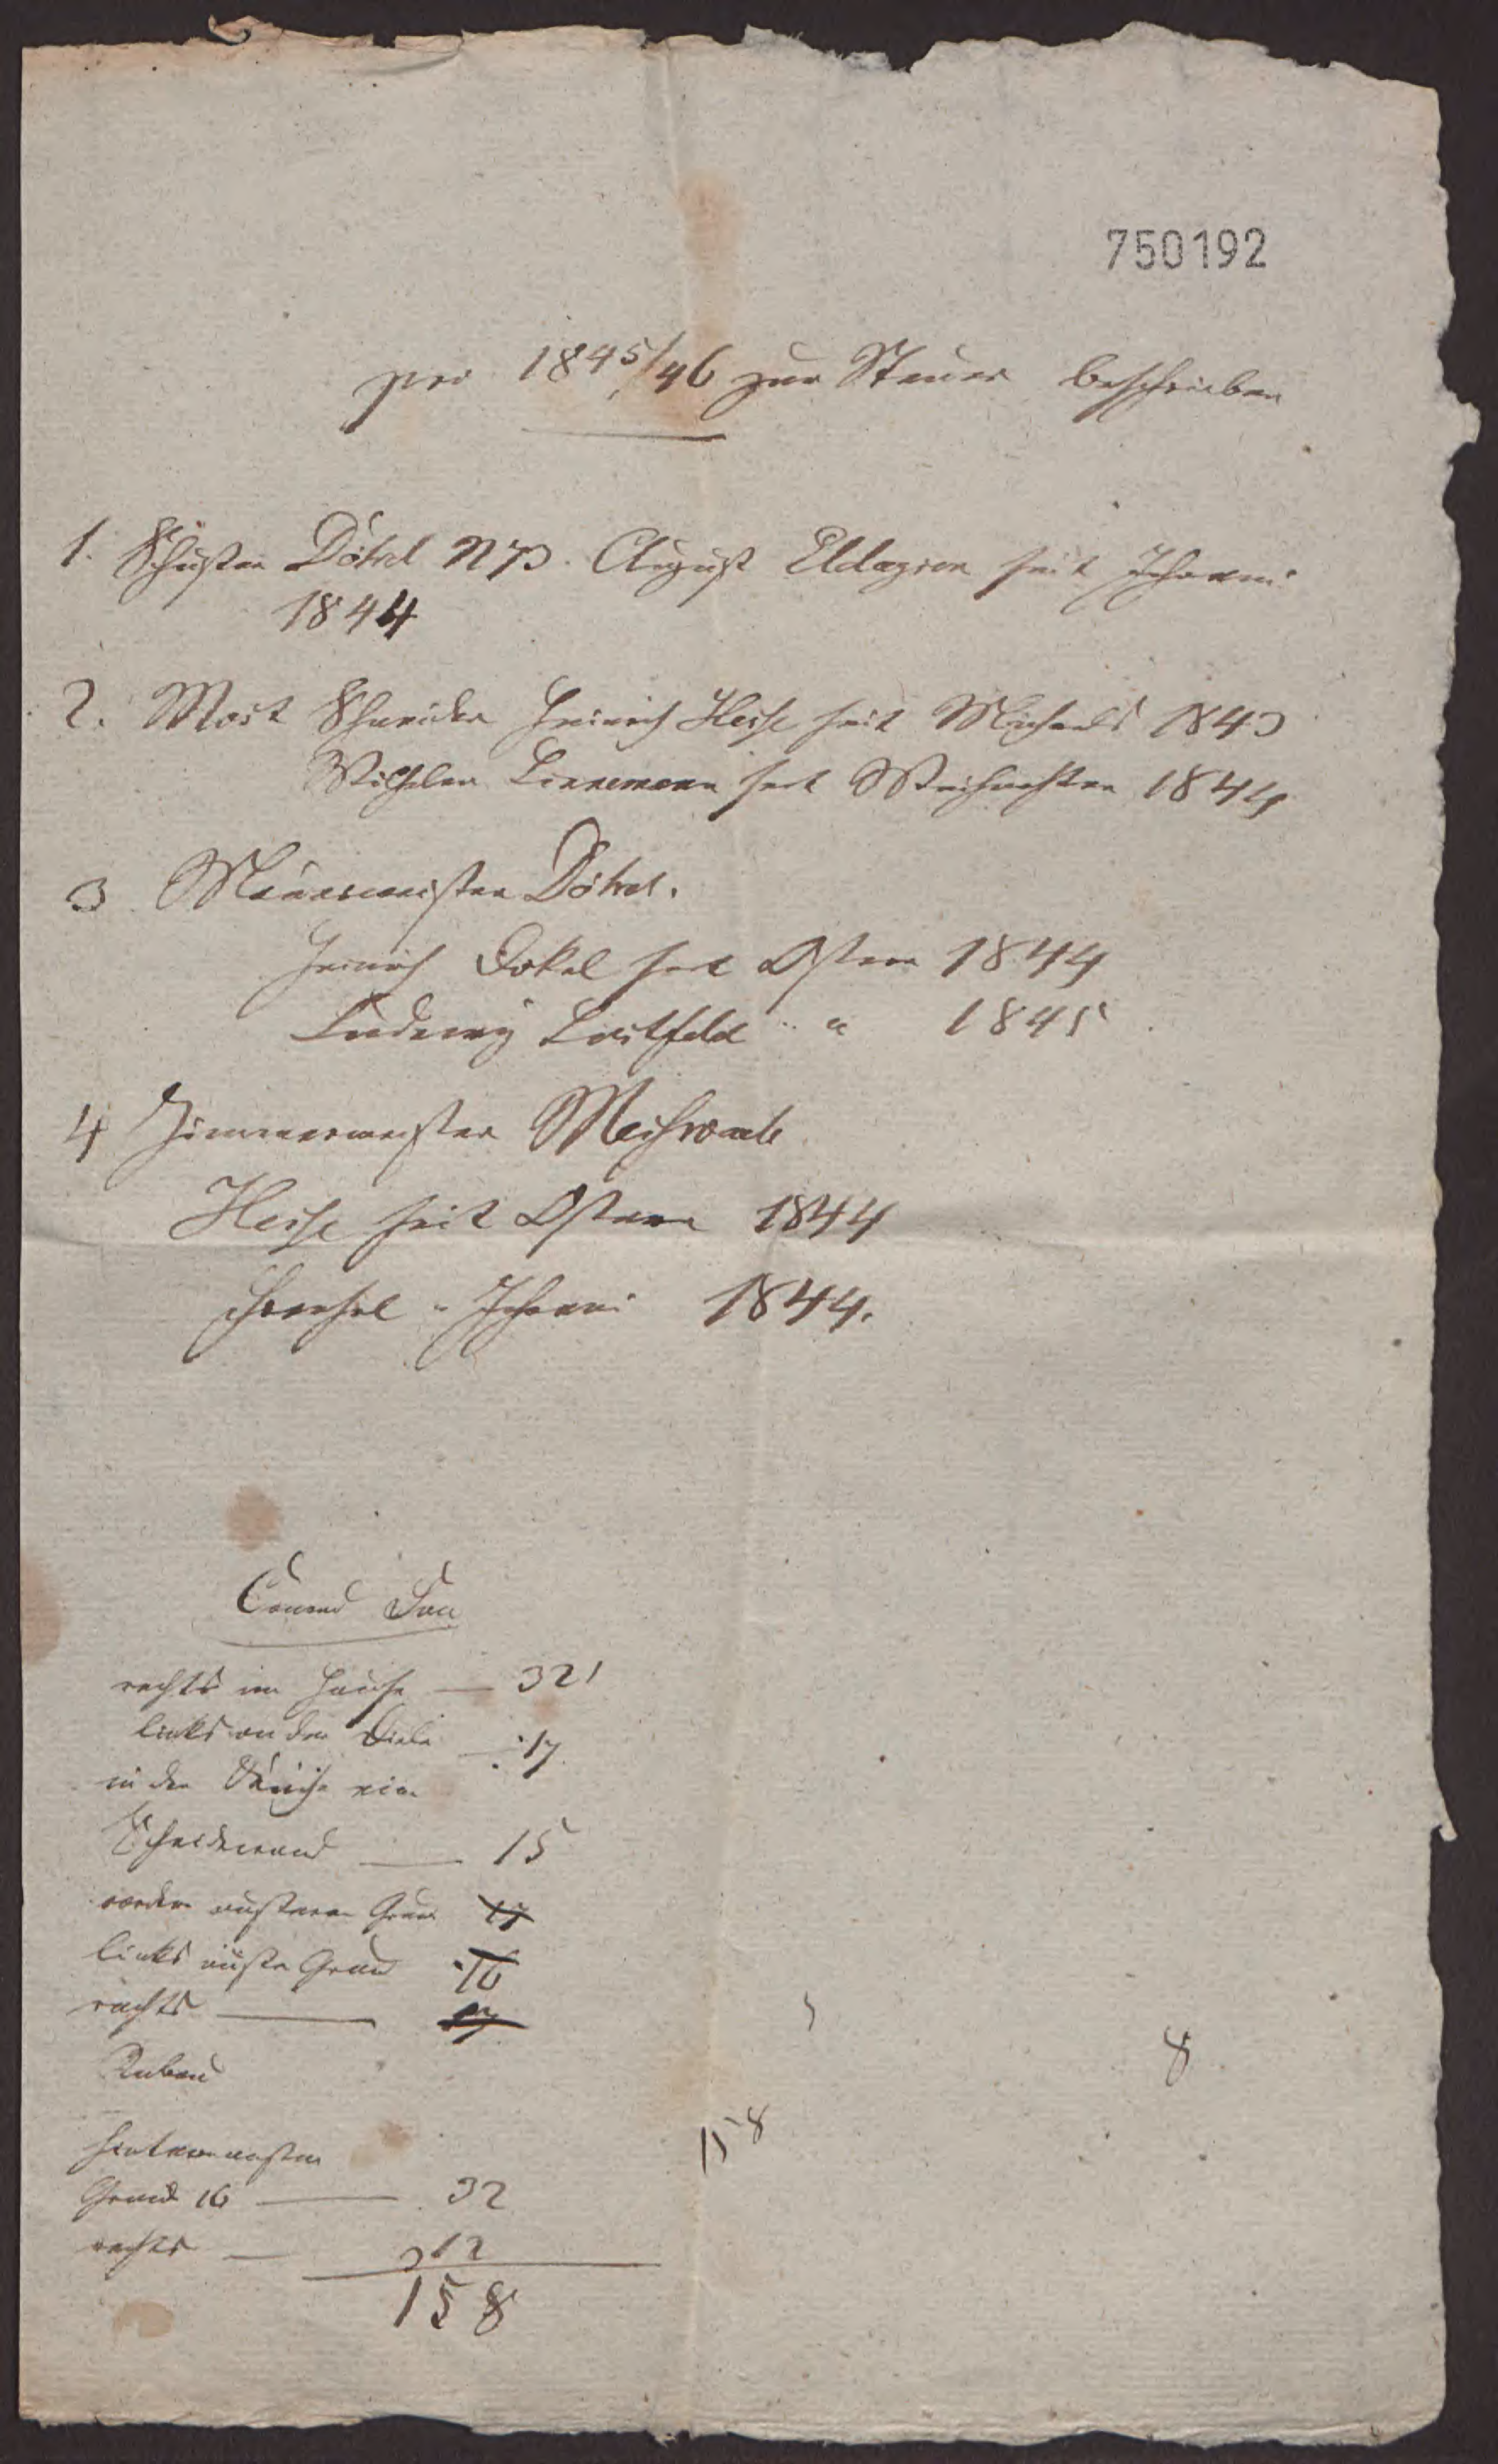 750192
pro 1845/46 zur Steuer beschrieben
1. Schuster Dökel N 73. August Eldagsen seit Johanni
1844
2. Mast Schneider Heinrich Heise seit Michaelis 1843
Wilhelm Linnemann seit Weihnachten 1844
3 Mauermeister Dökel.
Heinrich Dökel seit Ostern 1844
Ludewig Lostfeld " " 1845
4 Zimmermeister
Heise seit Ostern 1844
" Johanni 1844.
Conrad
rechts im Hause — 321
links an der Diele — 17
in der Küche eine
Scheidewand — 15
Grund 17
links Grund 16
rechts —
Anbau
Grund 16 — 32
rechts — 312
158
158
8